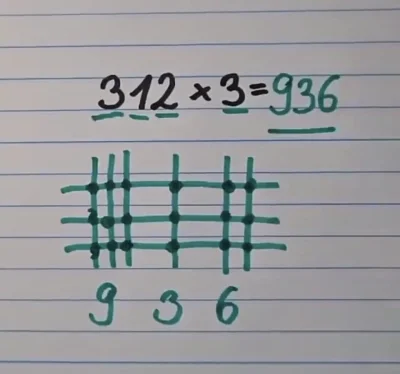 312 × 3 = 936
9 3 6